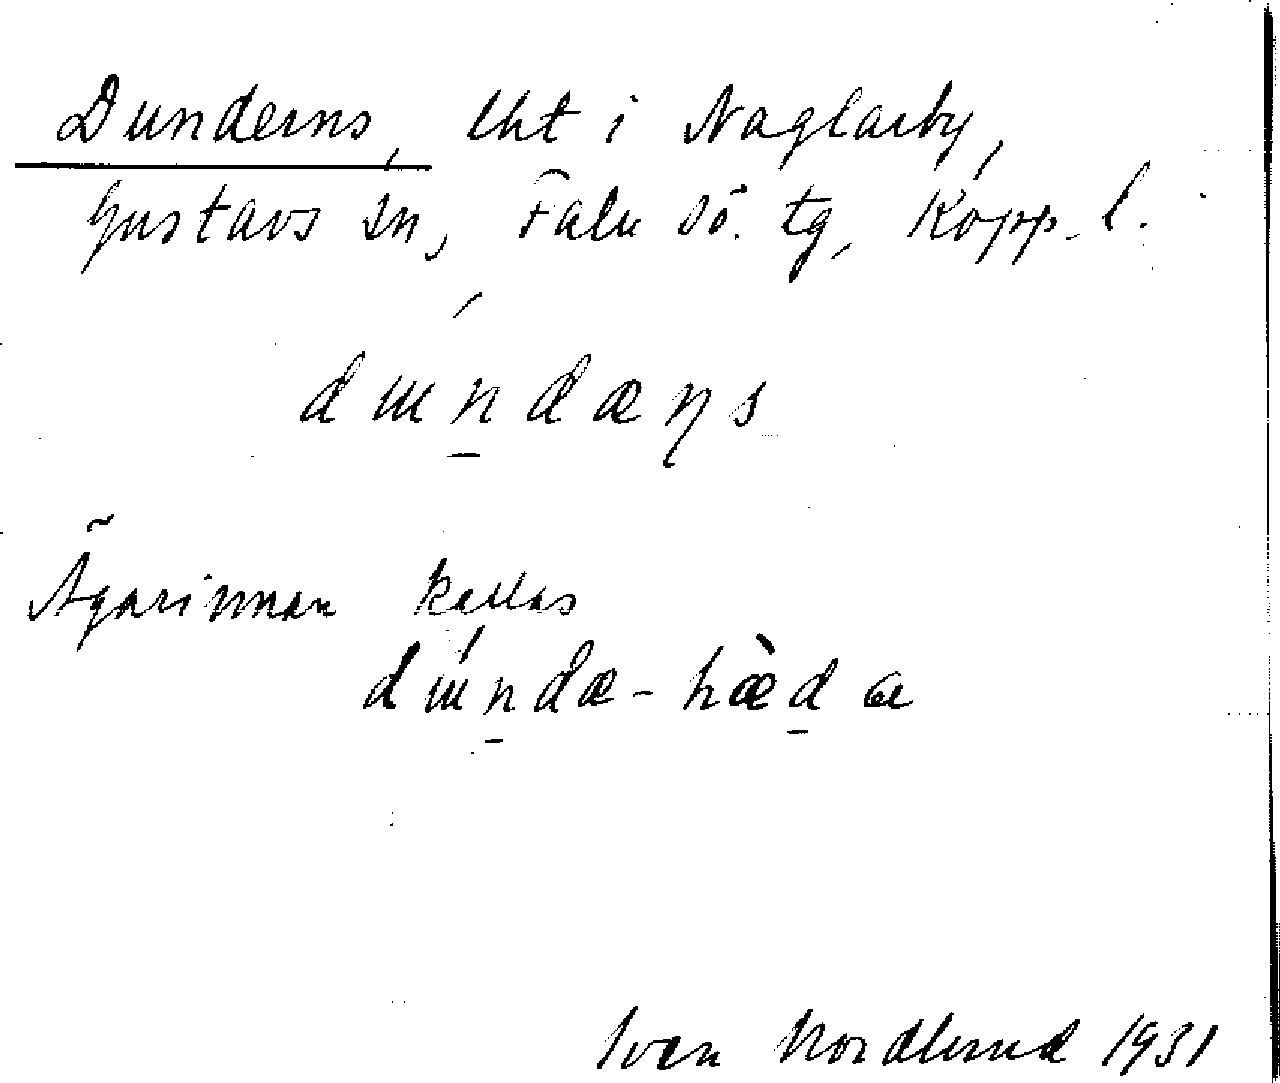 Dunderns, lht i Naglarby,
Gustavs sn, Falu sö. tg, Kopp. l.
dɯ́n̠dæɳs
Ägarinnan kallas
dɯ́n̠dæ-hæ̀d̠a
Ivan Nordlund 1931